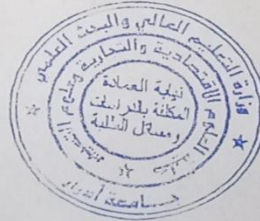 وزارة التعليم العالي والبحث العلمي
كلية العلوم الاقتصادية والتجارية وعلوم التسيير
نيابة العمادة
المكلفة بالدراسات
ومسائل الطلبة
جامعة أدرار